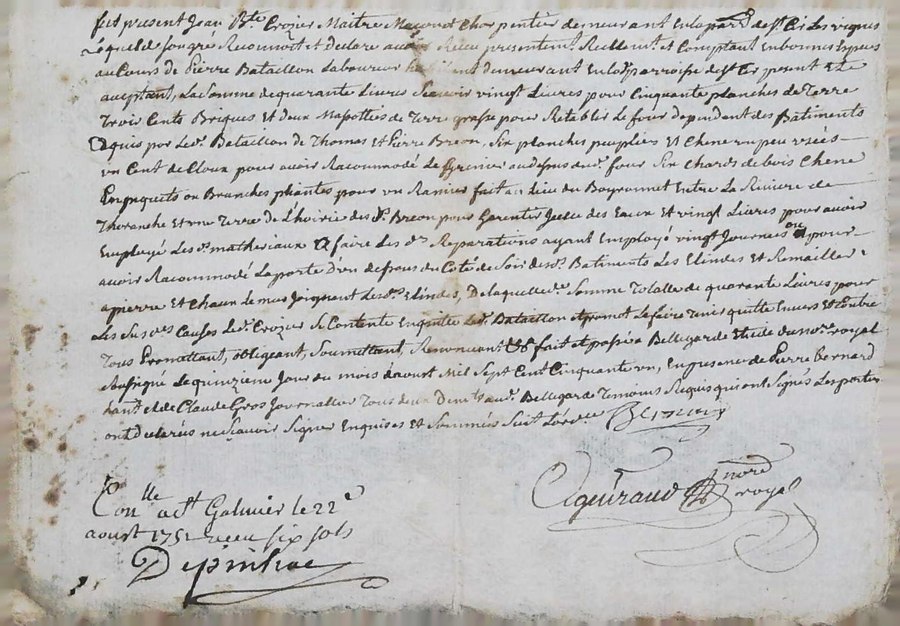 fut present Jean Bte Crozier Maitre Masson et Charpentier demeurant en la par de St Cir les vignes
Lequel de son gré Reconnoit et declare avoir Receu presentemt Reellemt et Comptant en bonnes Especes
au Cours de Pierre Bataillon Laboureur habitant demeurant en lad parroisse de St Cir present et
acceptant, La Somme de quarante Livres Scavoir vingt Livres pour Cinquante planches de Terre
Trois Cents Briques et deux Massottes de Terre grasse pour Retablir Le four dependant des Batiments
aquis par Led Bataillon de Thomas et Pierre Breon, Six planches peupliés et Chene un peu uzées
un Cent de Cloux pour avoir Racommodé Le Grenier au dessus du four Six Chards de bois Chene
en piquets ou Branches pliantes pour un Ramier fait au Lieu du Boyronnet Entre La Riviere de
Thoranche et une Terre de L'hoirie des Breon pour Garentir Jcelle des Eaux et vingt Livres pour avoir
Employé Les matheriaux a faire Les Reparations ayant Employé vingt Journees ou pour
avoir Racommodé La porte d'en dessous du Coté de Soir desd Batiments Les Elindes et Remailler a
apierre et Chaux Le mur Joignant Lesd Elindes, De laquelle Somme Totalle de quarante Livres pour
Les Susd Causes Led Crozier Se Contente En quitte Led Bataillon et promet Le faire Tenir quitte Envers et Contre
Tous Promettant, obligeant, Soumettant, Renoncant fait et passé a Bellegarde Etude du nore royal
soussigné Le quinzieme Jour du mois daoust Mil Sept Cent Cinquante un, En presence de Pierre Bernard
et de Claude Gros Journallier Tous deux Bellegarde Temoins Requis qui ont Signés Les parties
ont declarés ne Scavoir Signer Enquises et Sommées Suit
Conlle a St Galmier le 22e
aoust 1751 receu six sols
nore
royal